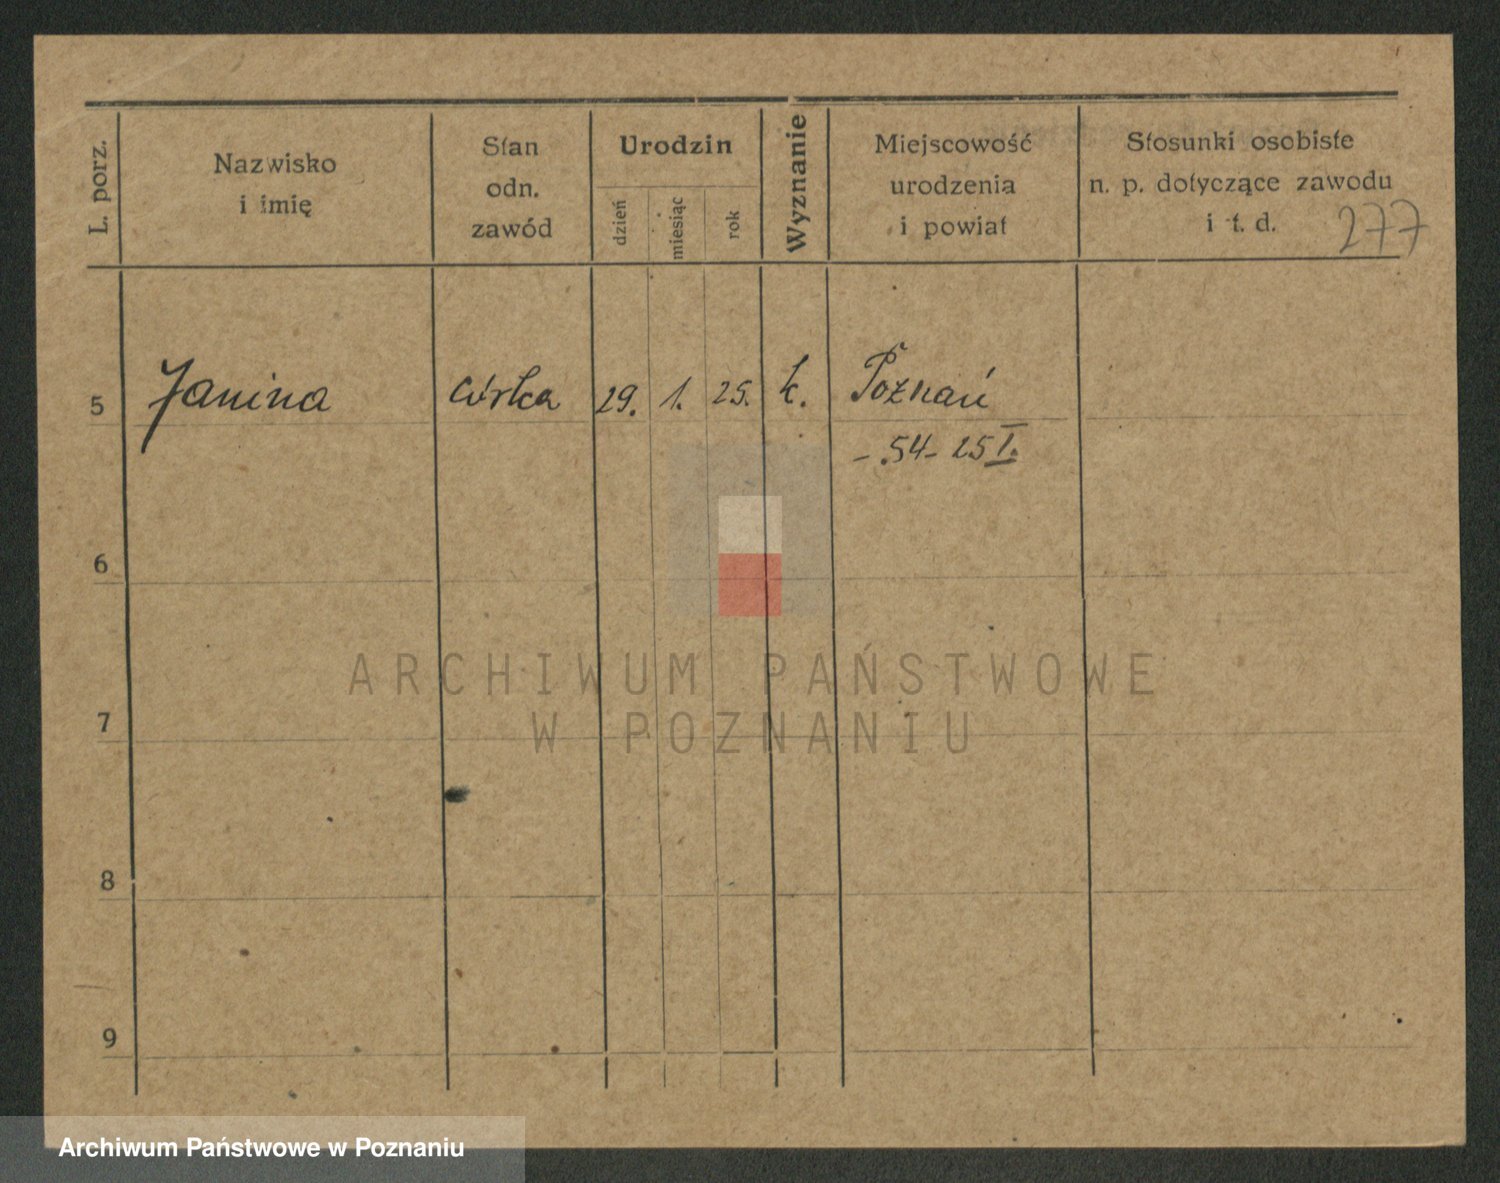 L. porz.
Nazwisko
i imię
Stan
odn.
zawód
Urodzin
dzień
miesiąc
rok
Wyznanie
Miejscowość
urodzenia
i powiat
Stosunki osobiste
n. p. dotyczące zawodu
i t. d.
277
5 Janina córka 29. 1. 25. k. Poznań
- .54 - 25 I.
6
7
8
9
ARCHIWUM PAŃSTWOWE
W POZNANIU
Archiwum Państwowe w Poznaniu